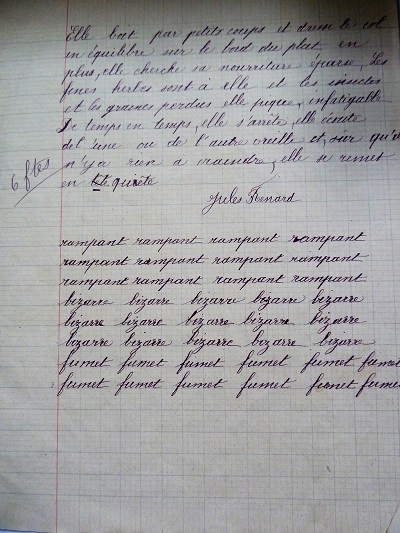 Elle boit par petits coups et dresse le col
en équilibre sur le bord du plat, en
plus, elle cherche sa nourriture éparse, Les
fines herbes sont à elle et les insectes
et les graines perdus elle pique, infatigable
De temps en temps, elle s'arrête, elle écoute
de l'une ou de l'autre oreille et, sûr qu'il
n'y a rien à craindre, elle se remet
en quête
6 ftes
Jules Renard
rampant rampant rampant rampant
rampant rampant rampant rampant rampant
rampant rampant rampant rampant
bizarre bizarre bizarre bizarre bizarre
bizarre bizarre bizarre bizarre bizarre
bizarre bizarre bizarre bizarre bizarre
fumet fumet fumet fumet fumet fumet
fumet fumet fumet fumet fumet fumet